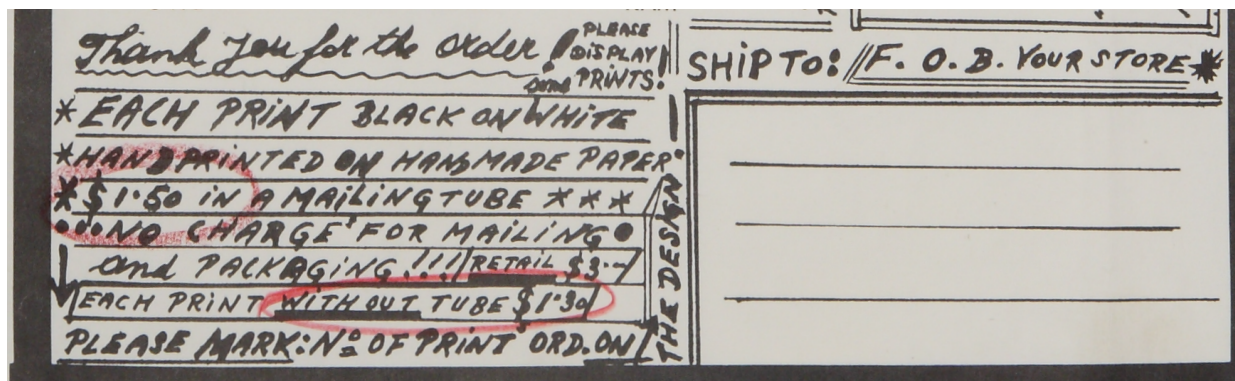 Thank You for the order!
PLEASE
DISPLAY
some PRINTS!
* EACH PRINT BLACK ON WHITE
* HANDPRINTED ON HANDMADE PAPER
* $1.50 IN A MAILING TUBE * * *
•••NO CHARGE FOR MAILING•
and PACKAGING!!! RETAIL $3.--
EACH PRINT WITHOUT TUBE $1.30
PLEASE MARK: No OF PRINT ORD. ON
THE DESIGN
SHIP TO: // F. O. B. YOUR STORE *